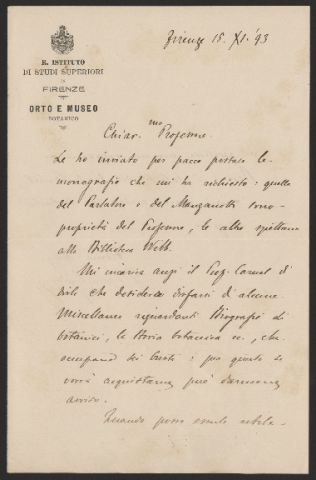 R. ISTITUTO
DI STUDI SUPERIORI
IN
FIRENZE
ORTO E MUSEO
BOTANICO
Firenze 15. XI. '93
Chiar.mo Professore
Le ho inviato per pacco postale le
monografie che mi ha richiesto: quelle
del Parlatore e del Marzanotti sono
proprietà del Professore, le altre spettano
alla Biblioteca Webb.
Mi incarica anzi il Prof. Caruel di
dirle che desidera disfarsi di alcune
Miscellanee riguardanti Biografie di
botanici, la storia botanica ec., che
occupano dei cresti: per quanto Le
verrà acquistarne può darmene
avviso.
Quando posso esserle utile